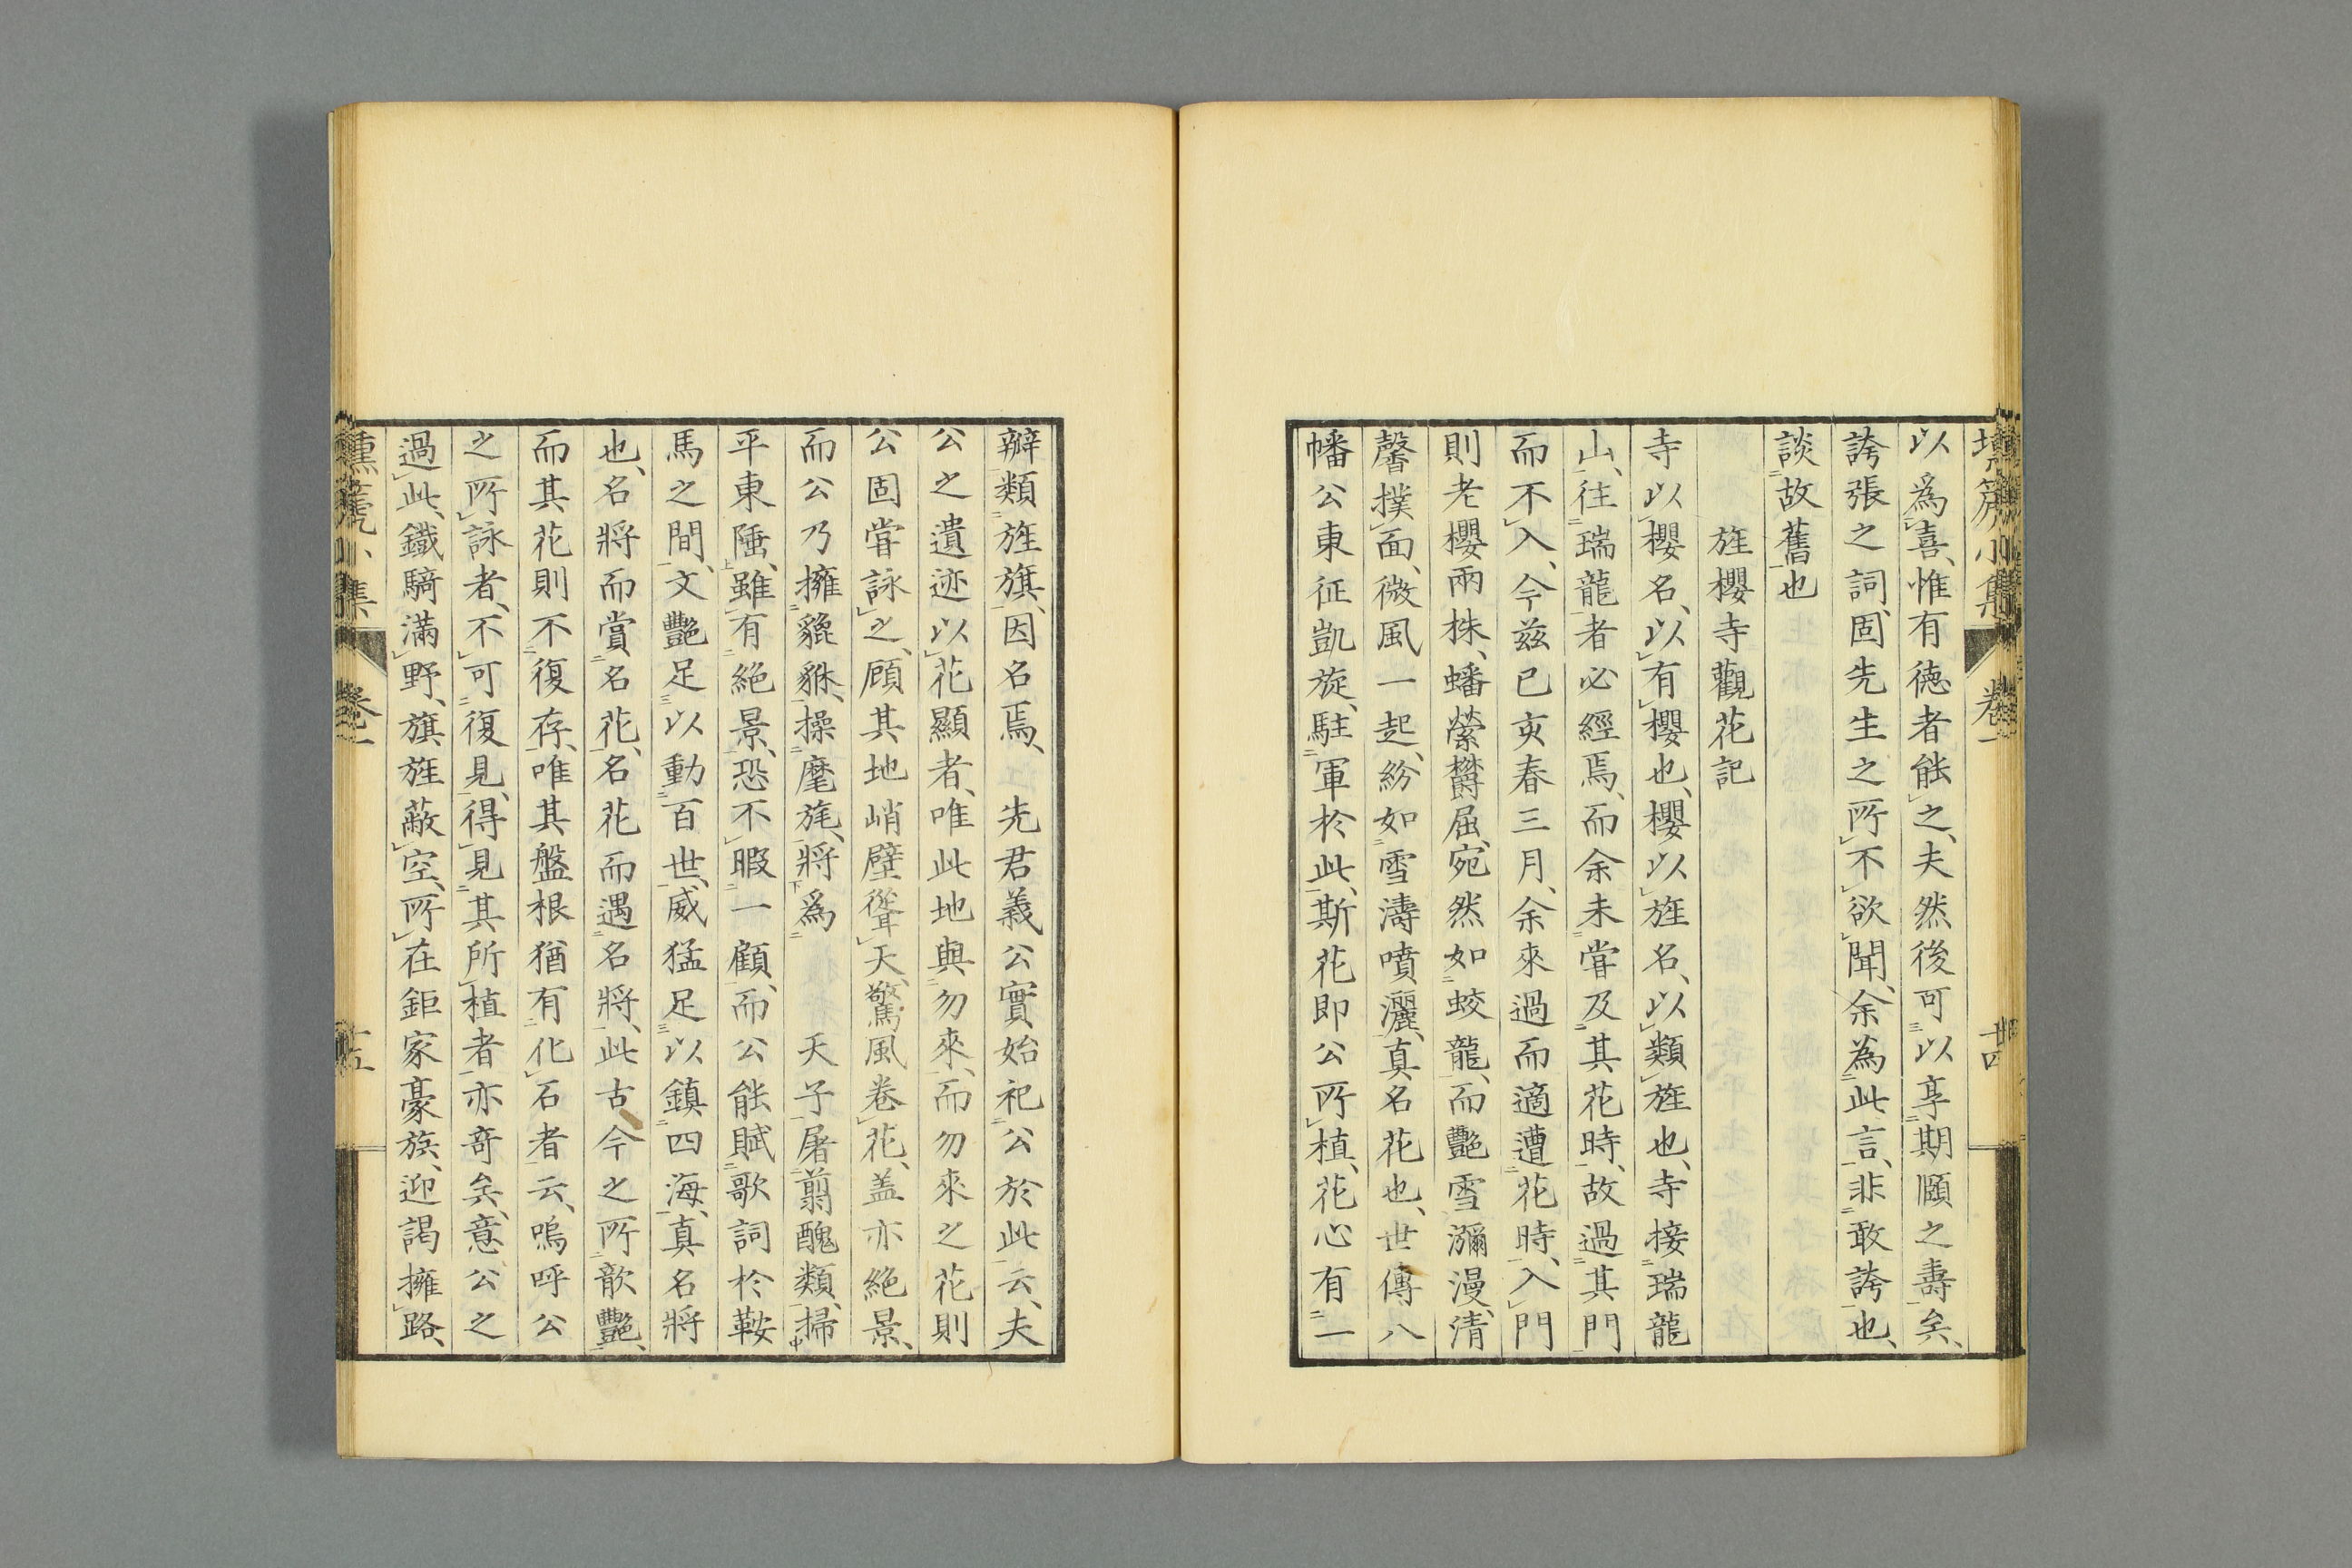 壎篪小集 卷一 十四
以爲喜、惟有徳者能之、夫然後可以享期頤之壽矣、
誇張之詞、固先生之所不欲聞、余為此言、非敢誇也、
談故舊也
旌櫻寺觀花記
寺以櫻名、以有櫻也、櫻以旌名、以類旌也、寺接瑞龍
山、往瑞龍者必經焉、而余未嘗及其花時、故過其門
而不入、今茲已亥春三月、余來過而適遭花時、入門
則老櫻兩株、蟠縈欝屈、宛然如蛟龍、而艷雪瀰漫、清
馨撲面、微風一起、紛如雪濤噴灑、真名花也、世傳八
幡公東征凱旋、駐軍於此、斯花即公所植、花心有一
辧類旌旗、因名焉、先君義公實始祀公於此云、夫
公之遺迹以花顯者、唯此地與勿來、而勿來之花則
公固嘗詠之、顧其地峭壁聳天、驚風卷花、盖亦絶景、
而公乃擁貔貅、操麾旄、將爲天子屠翦醜類、掃
平東陲、雖有絶景、恐不暇一顧、而公能賦歌詞於鞍
馬之間、文艷足以動百世、威猛足以鎮四海、真名將
也、名將而賞名花、名花而遇名將、此古今之所歆艷、
而其花則不復存、唯其盤根猶有化石者云、嗚呼公
之所詠者、不可復見、得見其所植者亦奇矣、意公之
過此、鐵騎滿野、旗旌蔽空、所在鉅家豪族、迎謁擁路、
壎篪小集 卷一 十五